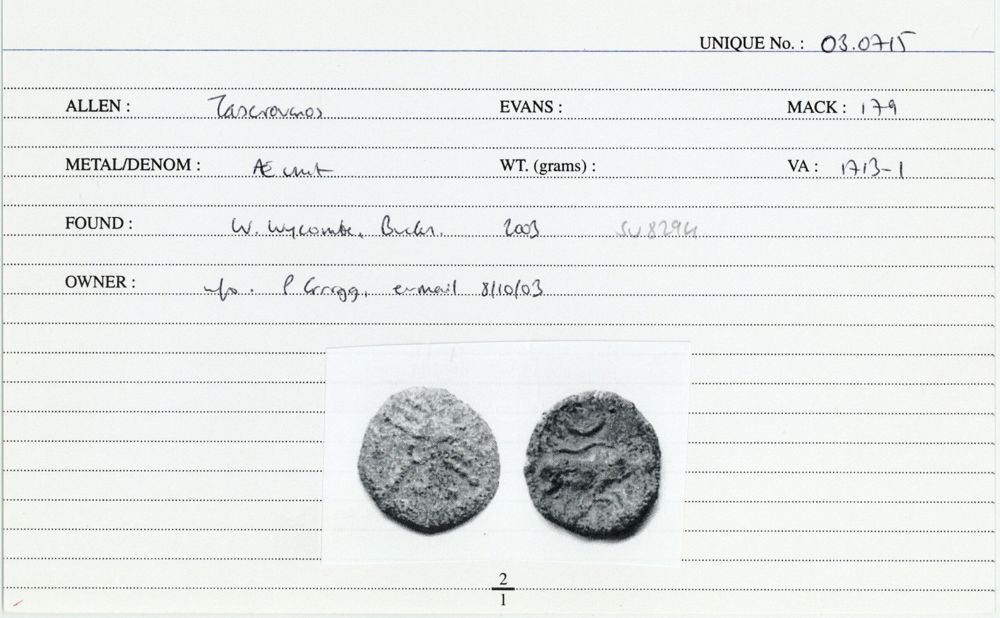 UNIQUE No. : 03.0715
ALLEN : Tasciovanos EVANS : MACK : 179
METAL/DENOM : Æ unit WT. (grams) : VA : 1713-1
FOUND : W. Wycombe, Bucks. 2003 SU8294
OWNER : info. P Gregg, e-mail 8/10/03
2
1